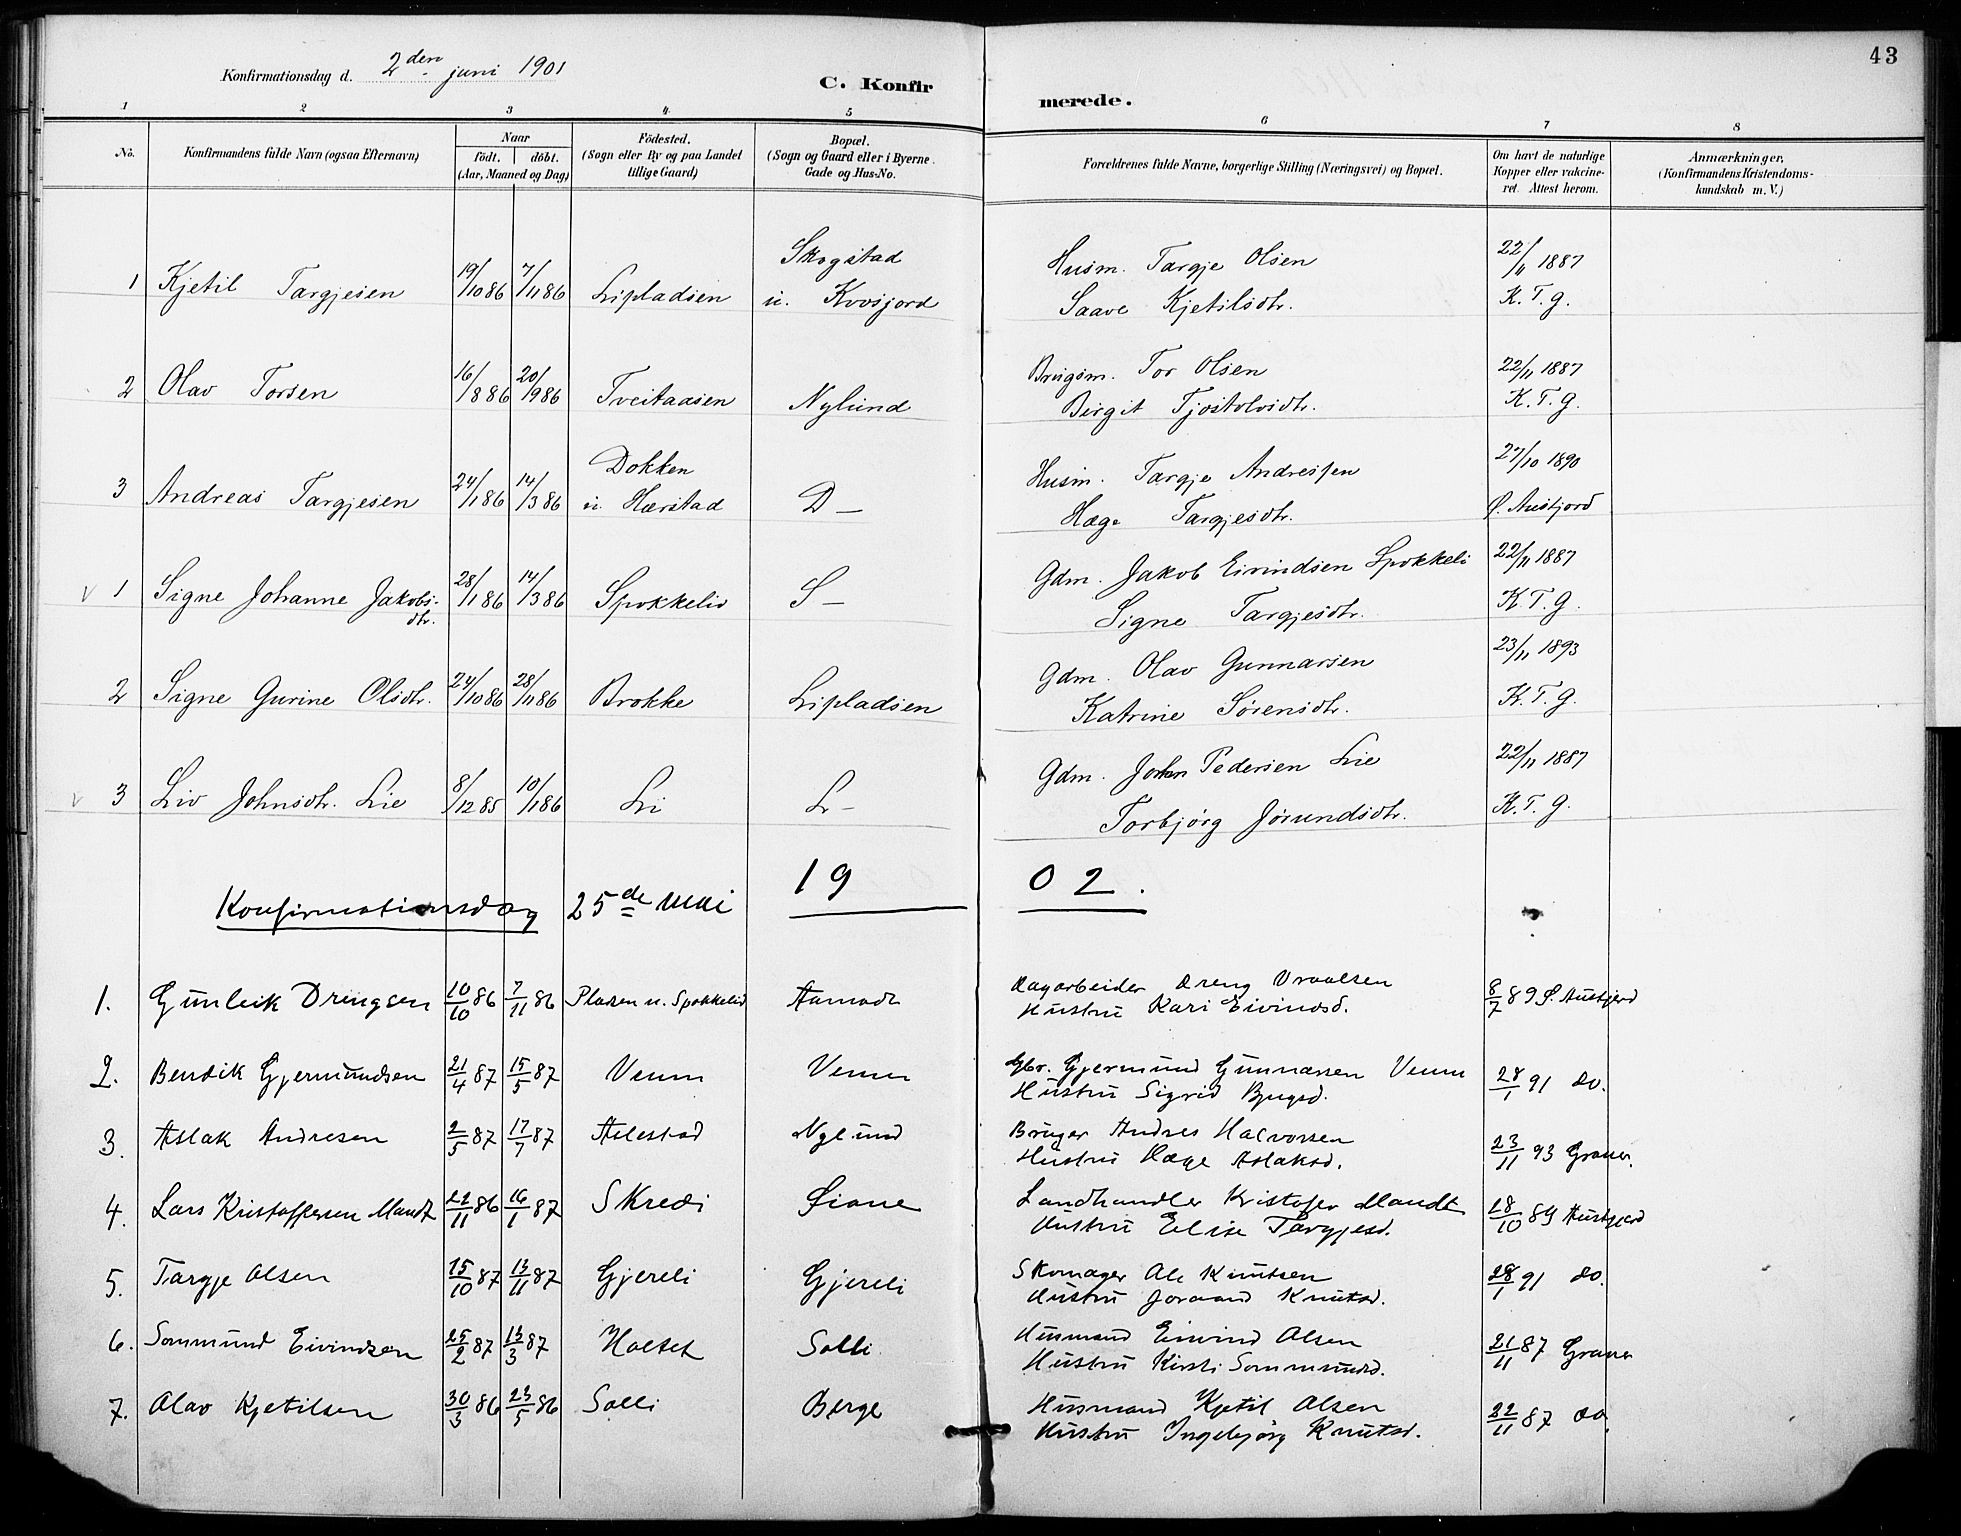 43
Konfirmationsdag d. 2den juni 1901
C. Konfirmerede.
1 2 3 4 5 6 7 8
No. Konfirmandens fulde Navn (ogsaa Efternavn) Naar födt. döbt. (Aar, Maaned og Dag) Födested. (Sogn eller By og paa Landet tillige Gaard) Bopæl. (Sogn og Gaard eller i Byerne Gade og Hus-No. Forældrenes fulde Navne, borgerlige Stilling (Næringsvei) og Bopæl. Om havt de naturlige Kopper eller vakcineret. Attest herom. Anmærkninger, (Konfirmandens Kristendomskundskab m. V.)
1 Kjetil Targjesen 19/10 86 7/11 86 Lipladsen Skogstad u. Kvosjord Husm. Targje Olsen 22/11 1887
Saave Kjetilsdtr. K. T. G.
2 Olav Torsen 16/8 86 20/9 86 Tveitaasen Nylund Brugsm. Tor Olsen 22/11 1887
Birgit Tjostolvsdtr. K. T. G.
3 Andreas Targjesen 24/1 86 14/3 86 Dokken u. Hærstad D – Husm. Targje Andressen 27/10 1890
Hæge Targjesdtr. Ø. Austjord
v 1 Signe Johanne Jakobsdtr. 28/1 86 14/3 86 Spokkeliv S – Gdm. Jakob Eivindsen Spokkeli 22/11 1887
Signe Targjesdtr. K. T. G.
2 Signe Gurine Olsdtr. 24/10 86 28/11 86 Brokke Lipladsen Gdm. Olav Gunnarsen 23/11 1893
Katrine Sørensdtr. K. T. G.
v 3 Liv Johnsdtr. Lie 8/12 85 10/1 86 Li L – Gdm. John Pedersen Lie 22/11 1887
Torbjørg Jørundsdtr. K. T. G.
Konfirmationsdag 25de mai 1902.
1. Gunleik Drengsen 10/10 86 7/11 86 Pladsen u. Spokkelid Aamodt Dagarbeider Dreng Vraalsen 8/7 89 S. Austjord
Hustru Kari Eivindsd.
2. Bendik Gjermundsen 21/4 87 15/5 87 Venm Venm Gbr. Gjermund Gunnarsen Venm 28/1 91 do.
Hustru Sigrid Bjugsd.
3. Aslak Andresen 2/5 87 17/7 87 Aslestad Nylund Bruger Andres Halvorsen 23/11 93 Graver.
Hustru Hæge Aslaksd.
4. Lars Kristoffersen Mandt 22/11 86 16/1 87 Skredi Øiane Landhandler Kristofer Mandt 28/10 89 Austjord
Hustru Elise Targjesd.
5. Targje Olsen 15/10 87 13/11 87 Gjereli Gjereli Skomager Ole Knutsen 28/1 91 do.
Hustru Joraand Knutsd.
6. Sommund Eivindsen 25/2 87 13/3 87 Holtet Solli Husmand Eivind Olsen 21/11 87 Graver
Hustru Kirsti Sommundsd.
7. Olav Kjetilsen 30/3 86 23/5 86 Solli Berge Husmand Kjetil Olsen 22/11 87 do.
Hustru Ingebjørg Knutsd.